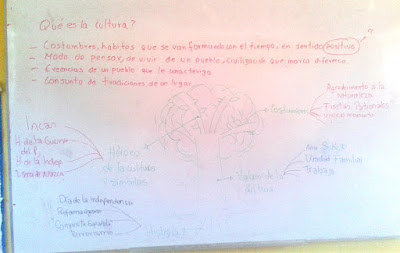 Qué es la cultura?
- Costumbres, habitos que se van formando con el tiempo, en sentido positivo
- Modo de pensar, de vivir de un pueblo, civilización que marca diferencia.
- Creencias de un pueblo que le caracteriza
- Conjunto de tradiciones de un lugar.
Agradecimiento a la
naturaleza
Fiestas Patronales
Costumbres
Incas
H de la Guerra
del P.
H de la Indep
Héroes
de la cultura
Unidad Familiar
Trabajo
Valores de la
cultura
Día de la Independencia
Reforma Agraria
Terrorismo
Historia